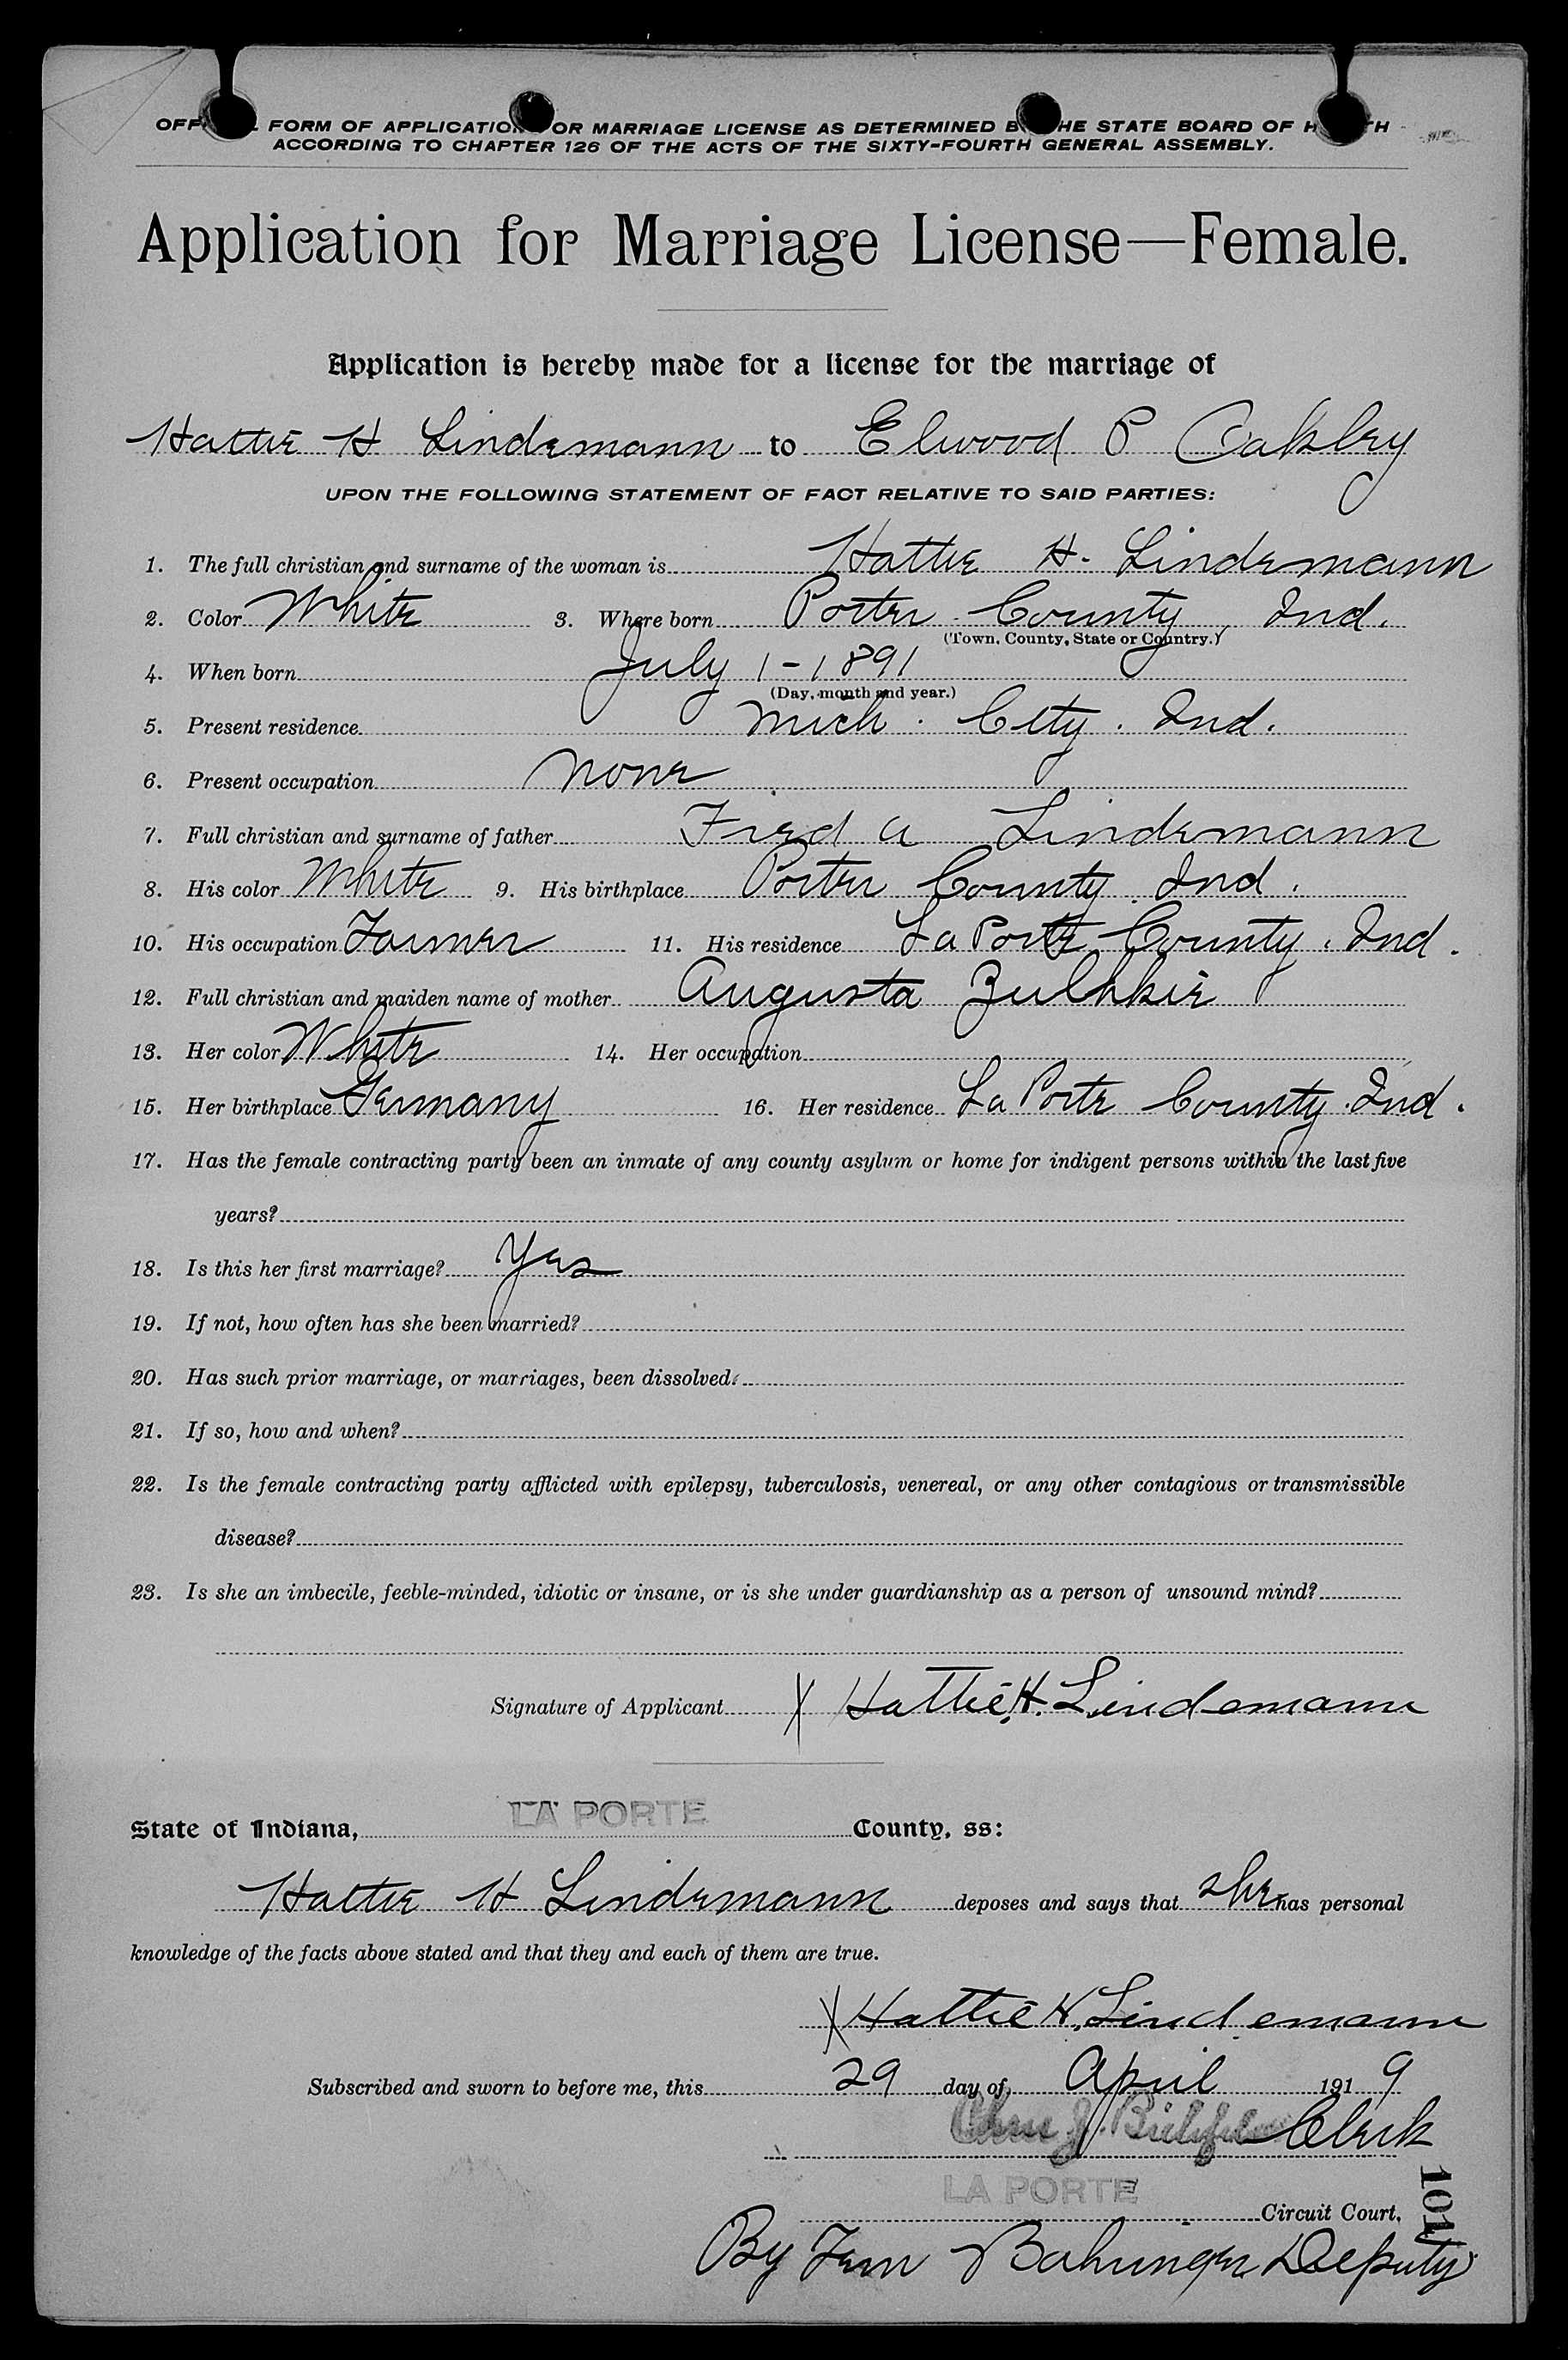 FORM OF APPLICATION FOR MARRIAGE LICENSE AS DETERMINED BY THE STATE BOARD OF HEALTH
ACCORDING TO CHAPTER 126 OF THE ACTS OF THE SIXTY-FOURTH GENERAL ASSEMBLY.
Application for Marriage License—Female.
Application is hereby made for a license for the marriage of
Hattie H Lindemann to Elwood P Oakley
UPON THE FOLLOWING STATEMENT OF FACT RELATIVE TO SAID PARTIES:
1. The full christian and surname of the woman is Hattie H. Lindemann
2. Color White 3. Where born Porter County, Ind.
(Town, County, State or Country.)
4. When born July 1-1891
(Day, month and year.)
5. Present residence Mich. City. Ind.
6. Present occupation None
7. Full christian and surname of father Fred A Lindemann
8. His color White 9. His birthplace Porter County. Ind.
10. His occupation Farmer 11. His residence La Porte County. Ind.
12. Full christian and maiden name of mother Augusta
13. Her color White 14. Her occupation
15. Her birthplace Germany 16. Her residence La Porte County. Ind.
17. Has the female contracting party been an inmate of any county asylum or home for indigent persons within the last five
years?
18. Is this her first marriage? Yes
19. If not, how often has she been married?
20. Has such prior marriage, or marriages, been dissolved?
21. If so, how and when?
22. Is the female contracting party afflicted with epilepsy, tuberculosis, venereal, or any other contagious or transmissible
disease?
23. Is she an imbecile, feeble-minded, idiotic or insane, or is she under guardianship as a person of unsound mind?
Signature of Applicant X Hattie H. Lindemann
State of Indiana, LA PORTE County, ss:
Hattie H Lindemann deposes and says that she has personal
knowledge of the facts above stated and that they and each of them are true.
X Hattie H. Lindemann
Subscribed and sworn to before me, this 29 day of April 1919
Clerk
LA PORTE Circuit Court,
By Fern Deputy
101